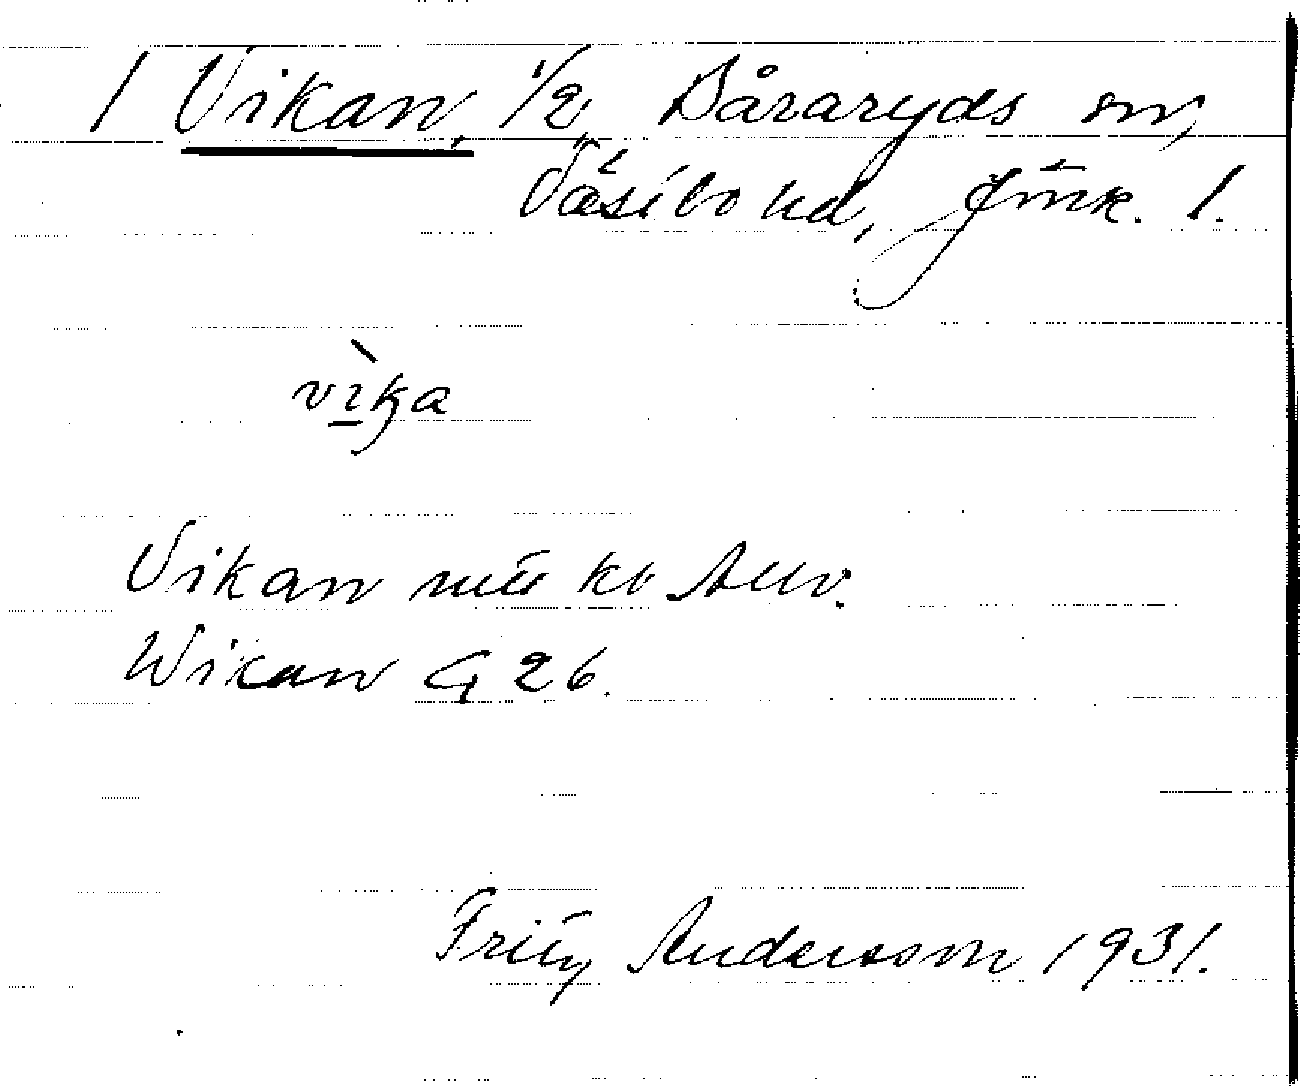 / Vikan, 1/2, Båraryds sn,
Västbo hd, Jönk. l.
vìka
Vikan
Wikan G 26.
Fritz Andersson 1931.